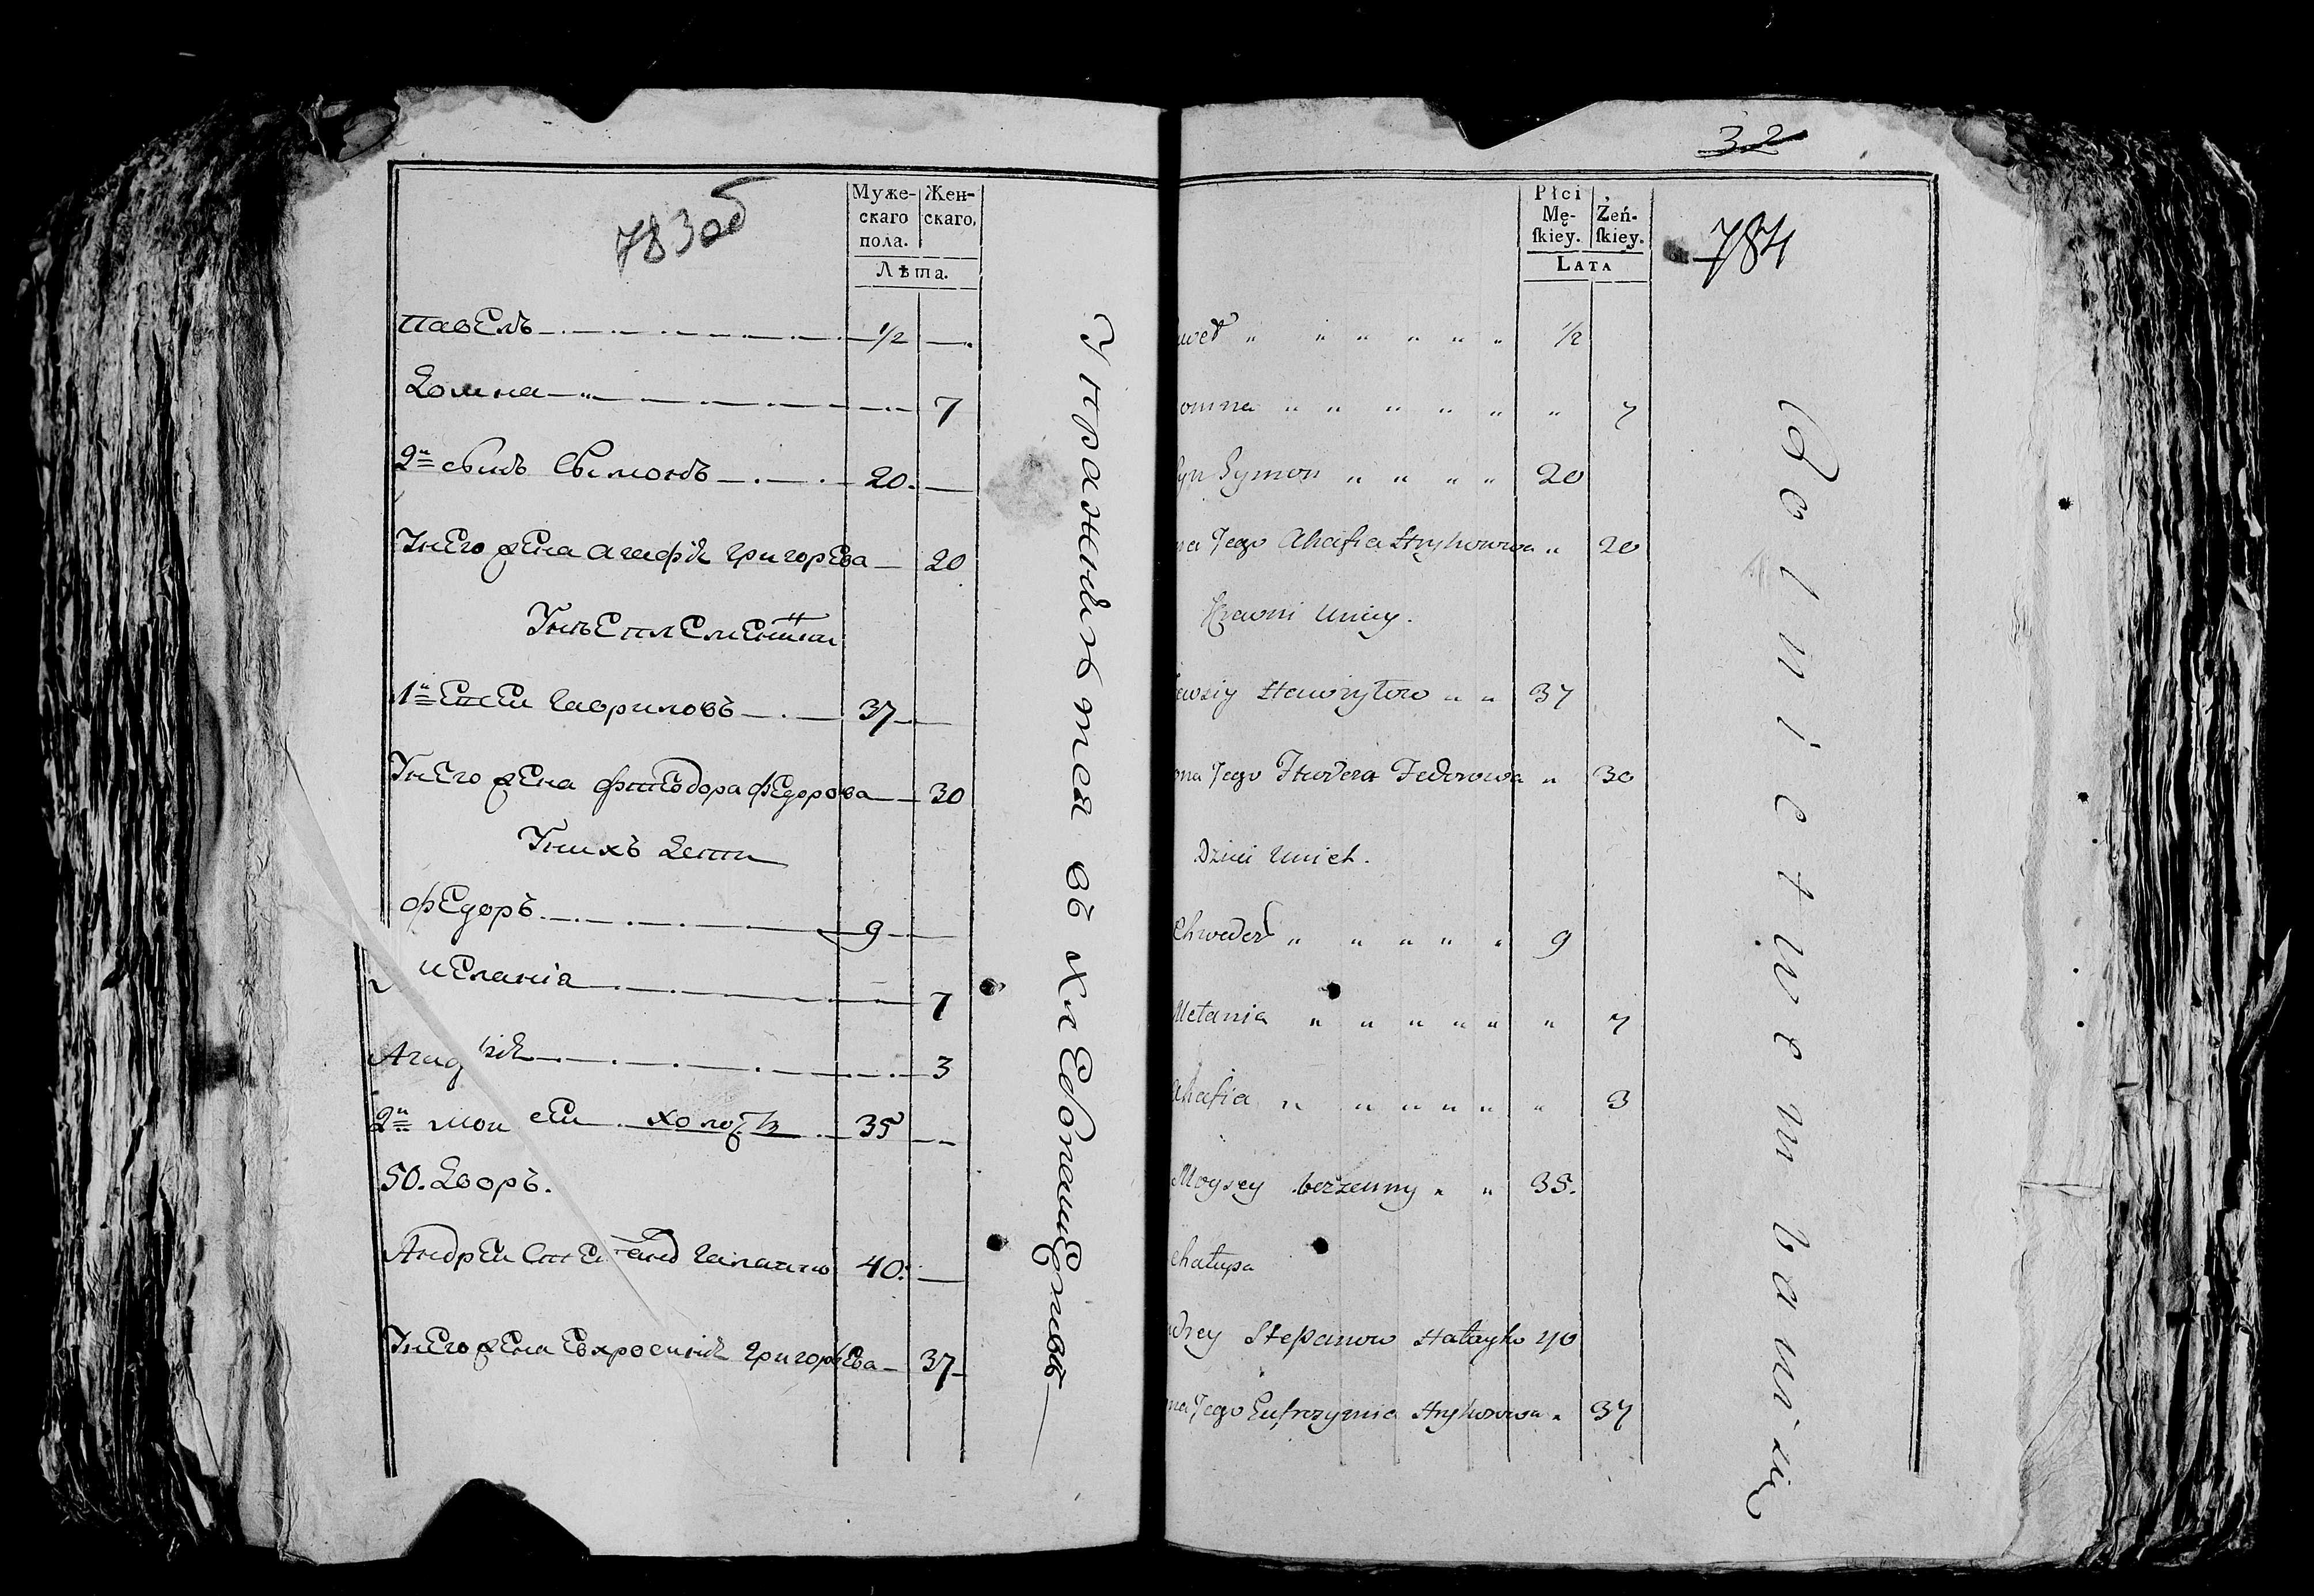 783 об
Муже-
скаго
пола.
Жен-
скаго.
Лѣта.
Павелъ 1/2
Домна 7
2й сынъ Сымонъ 20
Унего жена Агафія Григорева 20
Унѣе племенники
1й Евсеи Гавриловъ 37
Унего жена Фтеодора Федорова 30
Унихъ дети
Федоръ 9
Меланія 7
Агафія 3
2й Мои сеи холостъ 35
50. Дворъ.
Андреи Степановъ 40
Унего жена Евхросинія Григорьева 37
Упражняются въ хлебопашественъ
32
Płci
Mę-
skiey.
Żeń-
skiey.
Lata
784
weł " " " " " " 1/2
omna " " " " " " 7
yn Symon " " " " 20
na Jego Ahafia Hryhorowa " 20
Krewni Uniey.
ewsiy Hawryłow " " 37
ona Jego Fteodora Fedorowa " 30
Dzieci Unich.
Chweder " " " " " 9
Mełania " " " " " " 7
ahafia " " " " " " 3
Moysey bezżenny " " 35.
chałupa
drey Stepanow Hałayko 40
na Jego Eufrozymia Hryhorowa " 37
Rolnictwem bawi się